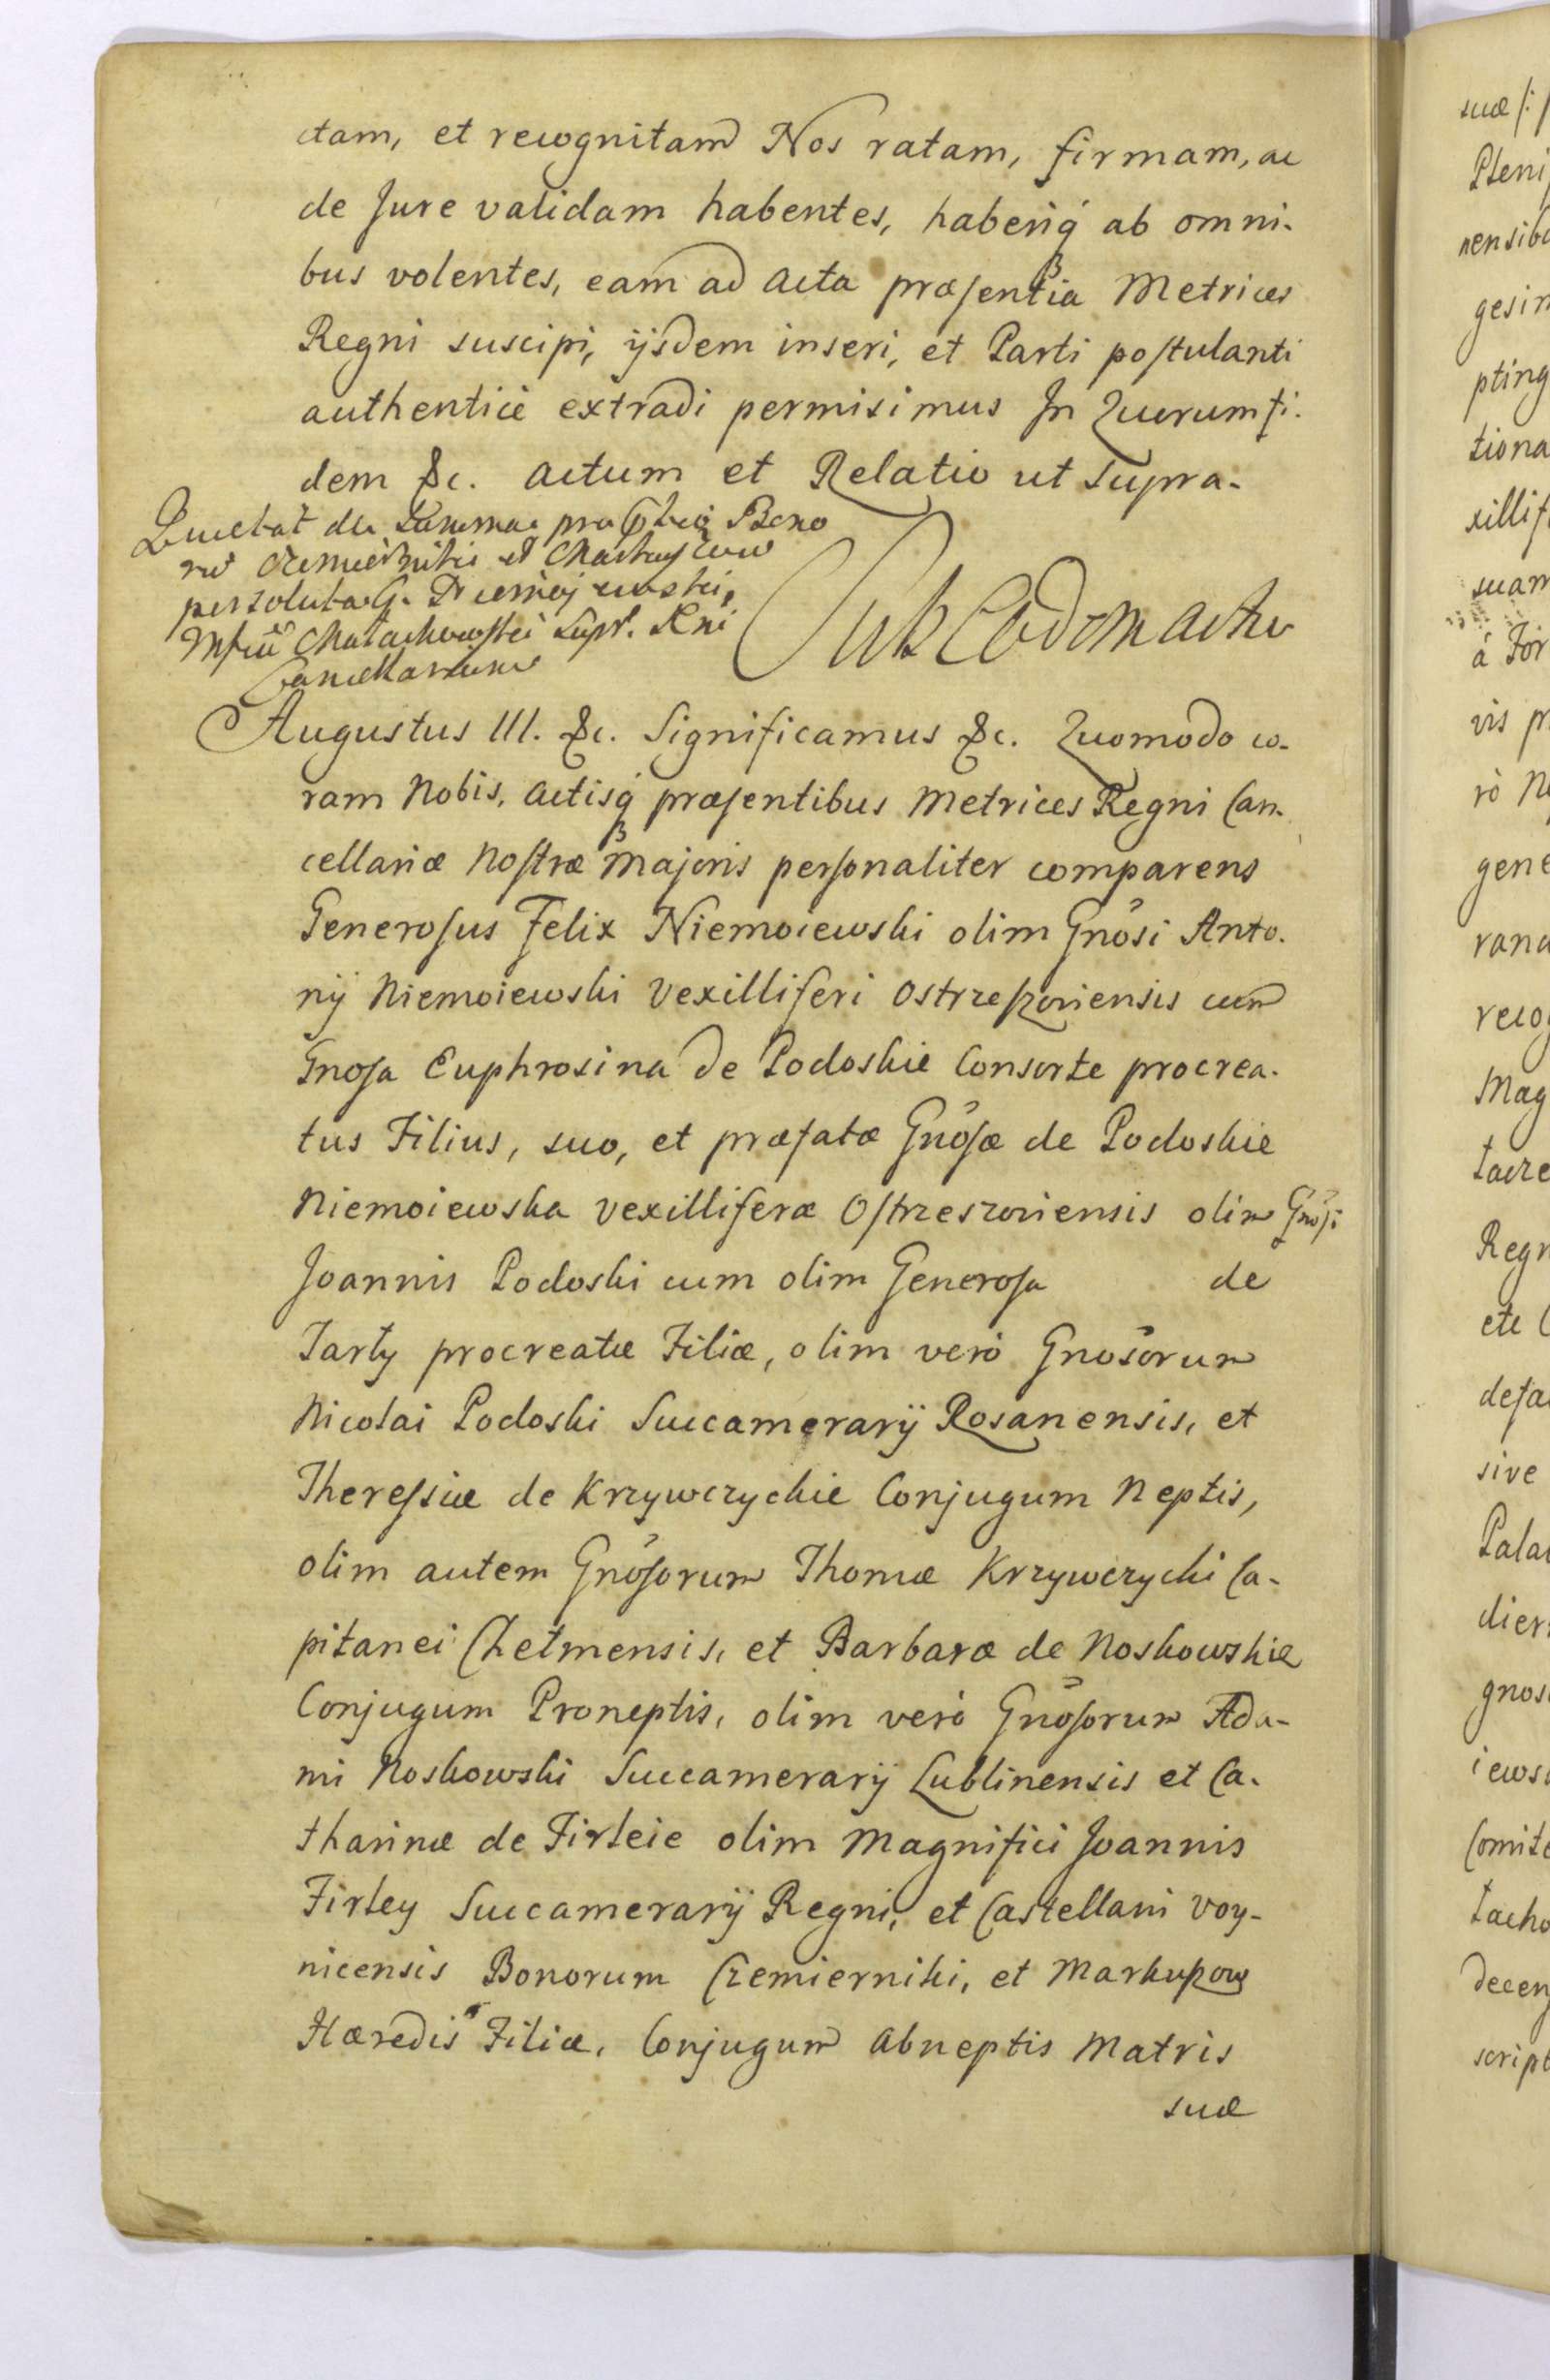 ctam, et recognitam Nos ratam, firmam, ac
de Jure validam habentes, haberiq́ ab omni-
bus volentes, eam ad Acta præsentia Metrices
Regni suscipi, ijsdem inseri, et Parti postulanti
authenticè extradi permisimus In Quorum fi-
dem &c. Actum et Relatio ut supra.
Quietat de Summa pro Bono
rũ Czemierniki et Markuszow
persoluta G. Niemojewski,
Mfcũ Małachowski Supr. Rni
Cancellarium
Sub Eodem Actu
Augustus III. &c. Significamus &c. Quomodo co-
ram Nobis, Actisq́ præsentibus Metrices Regni Can-
cellariæ Nostræ Majoris personaliter comparens
Generosus Felix Niemoiewski olim Gnõsi Anto-
nij Niemoiewski Vexilliferi Ostrzeszoviensis cum
Gnosa Euphrosina de Podoskie Consorte procrea-
tus Filius, suo, et præfatæ Gnõsæ de Podoskie
Niemoiewska Vexilliferæ Ostrzeszoviensis olim Gnõsi
Joannis Podoski cum olim Generosa de
Tarły procreatæ Filiæ, olim verò Gnõsorum
Nicolai Podoski Succamerarij Rosanensis, et
Theressiæ de Krzywczyckie Conjugum Neptis,
olim autem Gnõsorum Thomæ Krzywczycki Ca-
pitanei Chełmensis, et Barbaræ de Noskowskie
Conjugum Proneptis, olim verò Gnõsorum Ada-
mi Noskowski Succamerarij Lublinensis et Ca-
tharinæ de Firleie olim Magnifici Joannis
Firley Succamerarij Regni, et Castellani Voy-
nicensis Bonorum Czemierniki, et Markuszow
Hæredis Filiæ, Conjugum Abneptis Matris
suæ